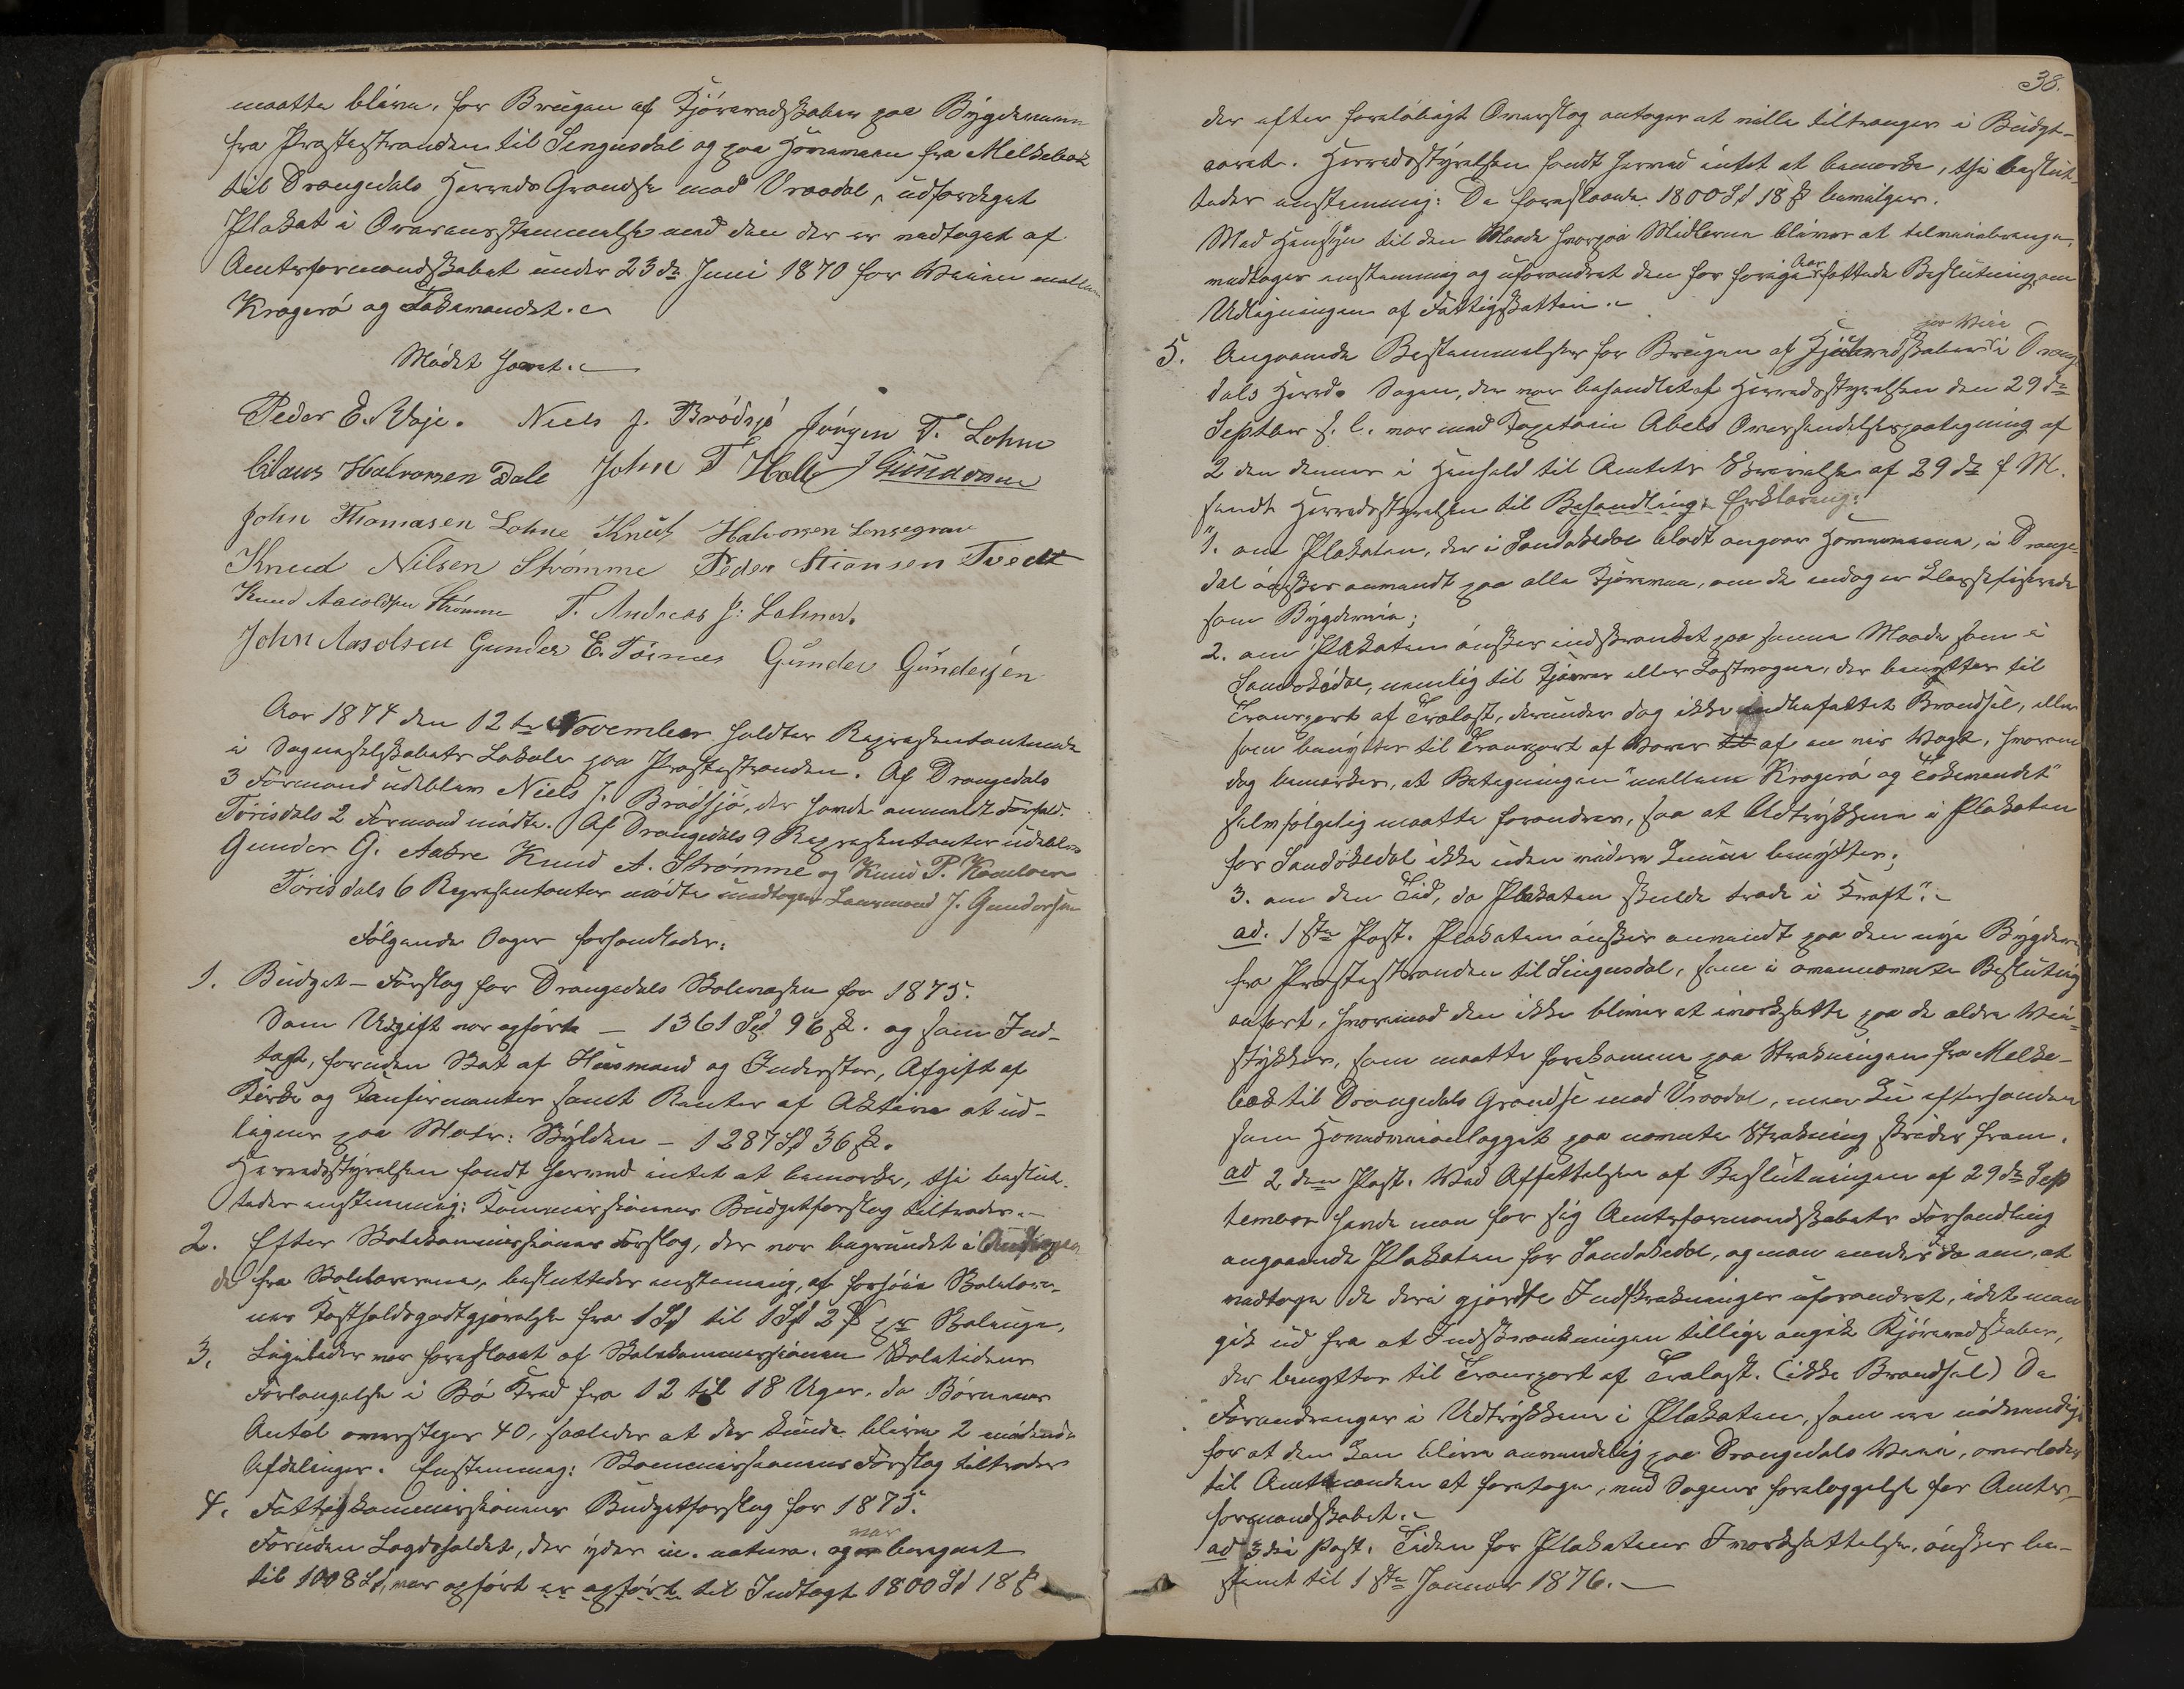 maatte blive, for Brugen af Kjøreredskaber paa Bygdeveien
fra Prestestranden til Singusdal og paa Hovedveien fra Melkebæk
til Drangedals Herreds Grændse mod Vraadal, udfærdiget
Plakat i Overensstemmelse med den der er vedtaget af
Amtsformandskabet under 23de Juni 1870 for Veien mellem
Kragerø og Tokevandet.
Mødet hævet.
Peder E. Voje. Niels J. Brødsjø Jørgen T. Lohne
Claus Halvorsen Dale John T Holte J Gundersen
John Thomasen Lohne Knut Halvorsen
Knud Nilsen Strømme Peder Stiansen Tvedt
Knud Aasoldsen Strømme T. Andreas J: Lohne.
John Aasolsen Gunder E. Tørnes Gunder Gundersen
Aar 1874 den 12te November holdtes Repræsentantmøde
i Sogneselskabets Lokale paa Prestestranden. Af Drangedals
3 Formænd udeblev Niels J. Brødsjø, der havde anmeldt Forfald.
Tørisdals 2 Formænd mødte. Af Drangedals 9 Repræsentanter udeblev
Gunder G. Aabre Knud A. Strømme og Knud P.
Tørisdals 6 Repræsentanter mødte undtagen J. Gundersen
Følgende Sager forhandledes:
1. Budget-Forslag for Drangedals Skolevæsen for 1875.
Som Udgift var opført – 1361 Spd 96 ß. og som Ind-
tægt, foruden Skat af Husmænd og Inderster, Afgift af
Kirke og Konfirmanter samt Renter af Aktiva at ud-
lignes paa Matr: Skylden – 1287 Sp 36 ß.
Herredsstyrelsen fandt herved intet at bemærke, thi beslut-
tedes enstemmig: Kommissionens Budgetforslag tiltrædes.
2. Efter Skolekommissionens Forslag, der var begrundet i
de fra Skolelærerne, besluttedes enstemmig, at forhøie Skolelærer-
nes Kostholdsgodtgjørelse fra 1 Sp til 1 Sp 2 ß pr Skoleuge,
3. Ligeledes var foreslaaet af Skolekommissionen Skoletidens
Forlængelse i Bø Kreds fra 12 til 18 Uger, da Børnenes
Antal overstiger 40, saaledes at der kunde blive 2 mødende
Afdelinger. Enstemmig: Kommissionens Forslag tiltrædes
4. Fattigkommissionens Budgetforslag for 1875.
Foruden Lægdsholdet, der ydes in natura, og var beregnet
til 1008 Sp, var opført er opført til Indtægt 1800 Sp 18 ß
38.
der efter foreløbigt Overslag antages at ville tiltrænges i Budget-
aaret. Herredsstyrelsen fandt herved intet at bemærke, thi beslut-
tedes enstemmig: De foreslaaede 1800 Sp 18 ß bevilges.
Med Hensyn til den Maade hvorpaa Midlerne bliver at tilveiebringe,
vedtages enstemmig og uforandret den for forrige Aar fattede Beslutning om
Udligningen af Fattigskatten.
5. Angaaende Bestemmelser for Brugen af Kjøreredskaber paa Veie i Drange
dals Herred. Sagen, der var behandlet af Herredsstyrelsen den 29de
Septber f. l. var med Kaptain Abels Oversendelsespaategning af
2den dennes i Henhold til Amtets Skrivelse af 29de f M.
sendt Herredsstyrelsen til Behandling: Erklæring:
"1. om Plakaten, der i Sandøkedal blodt angaar Hovedveiene, i Drange-
dal ønskes anvendt paa alle Kjøreveie, om de endog er klassificerede
som Bygdeveie;
2. om Plakaten ønskes indskrænket paa samme Maade som i
Sandøkedal, nemlig til Kjærrer eller Lastvogne, der benyttes til
Transport af Trælast, derunder dog ikke indbefattet Brændsel, eller
som benyttes til Transport af Varer til af en vis Vægt, hvorom
dog bemærkes, at Betegningen "mellem Kragerø og Tokevandet"
selvfølgelig maatte forandres, saa at Udtrykkene i Plakaten
for Sandøkedal ikke uden videre kunne benyttes;
3. om den Tid, da Plakaten skulde træde i Kraft".
ad. 1ste Post. Plakaten ønskes anvendt paa den nye Bygdevei
fra Prestestranden til Singusdal, som i ovennævnte Beslutning
anført, hvorimod den ikke bliver at iværksætte paa de ældre Vei-
stykker, som maatte forekomme paa Strækningen fra Melke-
bæk til Drangedals Grændse mod Vraadal, men kun eftersom
som Hovedveianlægget paa nævnte Strækning skrider frem.
ad 2den Post. Ved Affattelsen af Beslutningen af 29de Sep
tember havde man for sig Amtsformandskabets Forhandling
angaaende Plakaten for Sandøkedal, og man enedes da om, at
vedtage de deri gjordte Indskrænkninger uforandret, idet man
gik ud fra at Indskrænkningen tillige angik Kjøreredskaber,
der benyttes til Transport af Trælast. (ikke Brændsel) De
Forandringer i Udtrykkene i Plakaten, som ere nødvendige
for at den kan blive anvendelig paa Drangedals Veie, overlades
til Amtmanden at foretage, ved Sagens Foreleggelse for Amts-
formandskabet.
ad 3die Post. Tiden for Plakatens Iværksættelse, ønskes be-
stemt til 1ste Januar 1876.